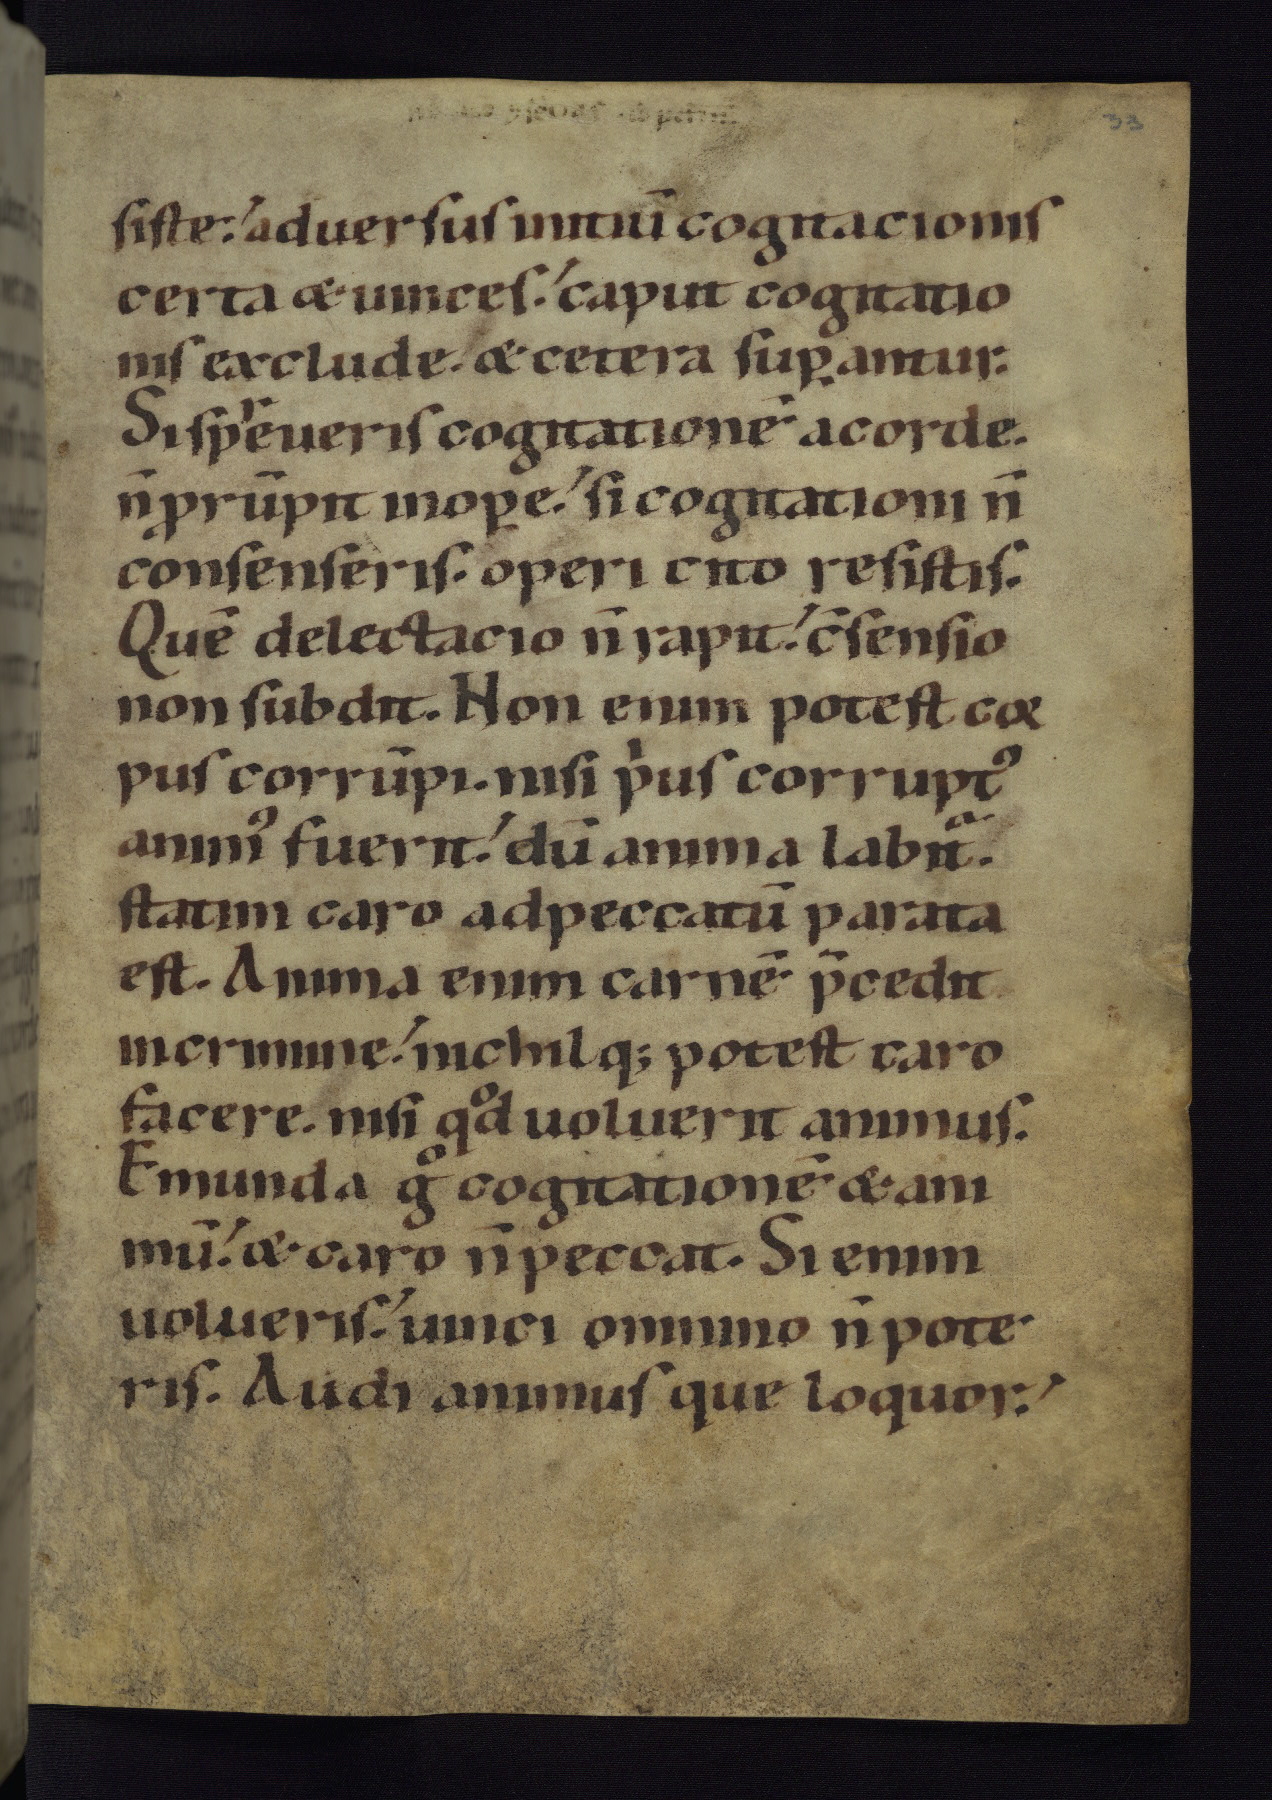 33
siste:́ aduersus initiū cogitacionis
certa & uinces:́ caput cogitatio
nis exclude. & cetera suꝑantur.
Si spͬeueris cogitationē acorde.
n̄ ꝓrūpit inope:́ si cogitationi n̄
consenseris. operi cito resistis.
Quē delectacio n̄ rapit:́ c̄sensio
non subdit. Non enim potest cor
pus corrūpi. nisi pͥus corruptꝰ
animꝰ fuerit:́ dū anima labitͣ.
statim caro adpeccatū parata
est. Anima enim carnē p̄cedit
incrimine:́ nichilq; potest caro
facere. nisi qͦd uoluerit animus.
Emunda gͦ cogitationē & ani
mū:́ & caro n̄ peccat. Si enim
uolueris:́ uinci omnino n̄ pote
ris. Audi animus que loquor:́